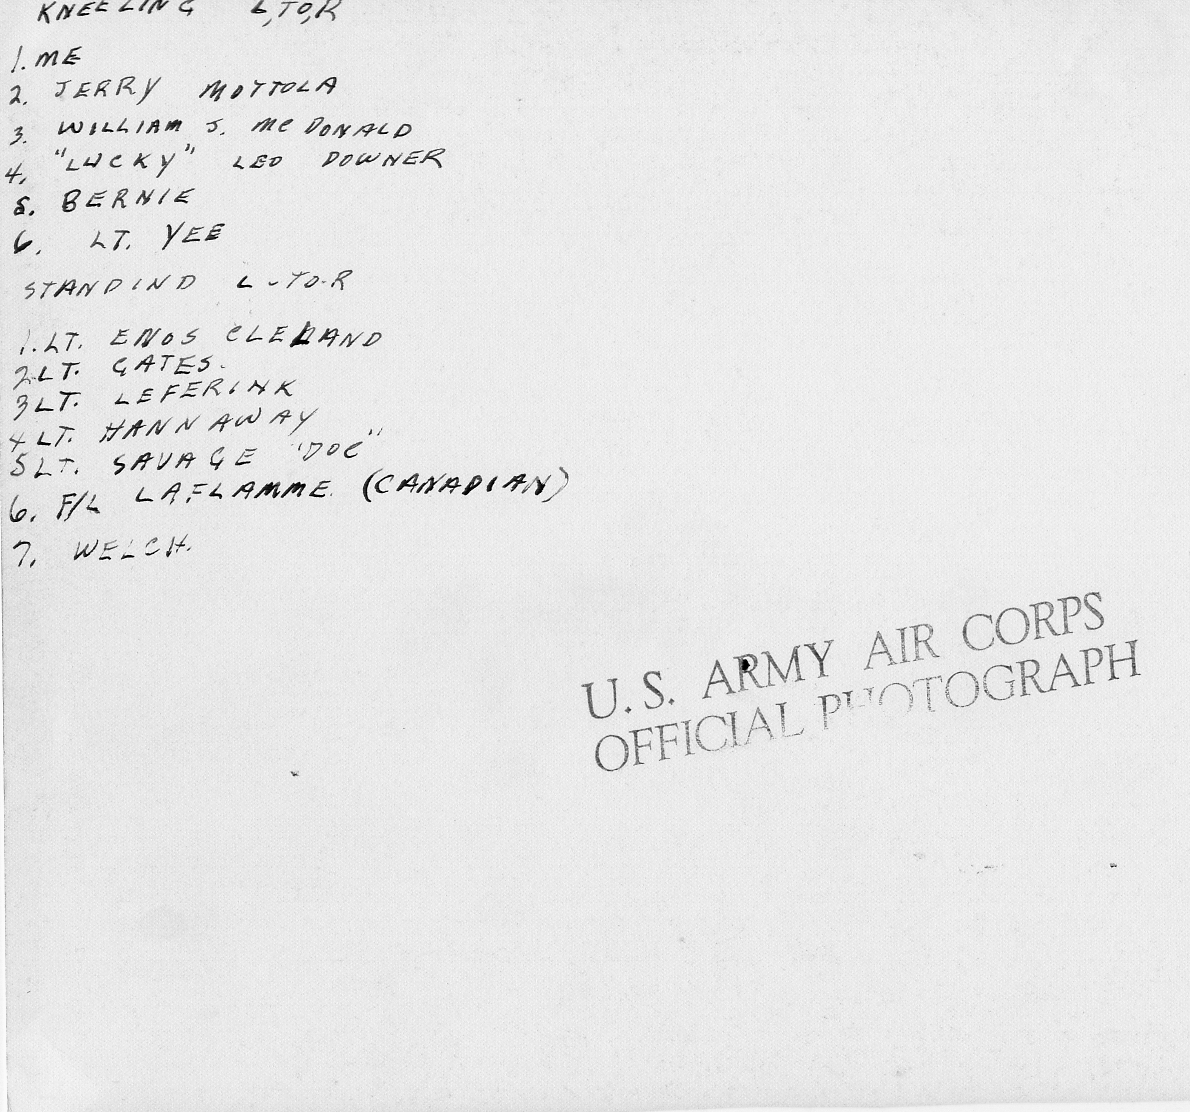 KNEELING L,TO,R
1. ME
2. JERRY MOTTOLA
3. WILLIAM J. MC DONALD
4. "LUCKY" LEO DOWNER
5. BERNIE
6. LT. YEE
STANDIND L-TO-R
1. LT. ENOS CLELAND
2 LT. GATES.
3 LT. LEFERINK
4 LT. HANNAWAY
5 LT. SAVAGE "DOC"
6. F/L LAFLAMME. (CANADIAN)
7. WELCH.
U.S. ARMY AIR CORPS
OFFICIAL PHOTOGRAPH